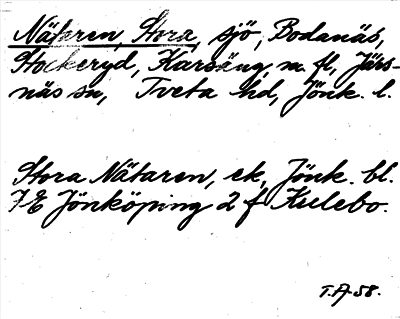 Nätaren, Stora, sjö, Bodanäs,
Stockeryd, Karsäng m. fl., Järs-
näs sn, Tveta hd, Jönk. l.
Stora Nätaren, ek, Jönk. bl.
7E Jönköping 2 f Kulebo.
T.A-58.